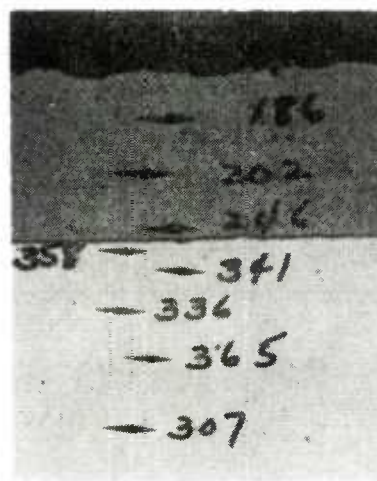 186
202
246
358
341
336
365
307